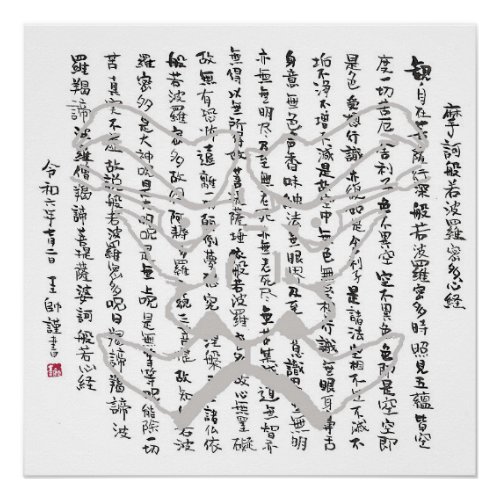 摩訶般若波羅蜜多心経
観自在菩薩行深般若波羅蜜多時照見五蘊皆空
度一切苦厄舎利子色不異空空不異色色即是空空即
是色受想行識亦復如是舎利子是諸法空相不生不滅不
垢不浄不増不減是故空中無色無受想行識無眼耳鼻舌
身意無色声香味触法無眼界乃至無意識界無無明
亦無無明尽乃至無老死亦無老死尽無苦集滅道無智亦
無得以無所得故菩提薩埵依般若波羅蜜多故心無罣礙
故無有恐怖遠離一切顛倒夢想究竟涅槃三世諸仏依
般若波羅蜜多故得阿耨多羅三藐三菩提故知般若波
羅蜜多是大神呪是大明呪是無上呪是無等等呪能除一切
苦真実不虚故説般若波羅蜜多呪即説呪曰羯諦羯諦波
羅羯諦波羅僧羯諦菩提薩婆訶般若心経
令和六年七月二日 謹書